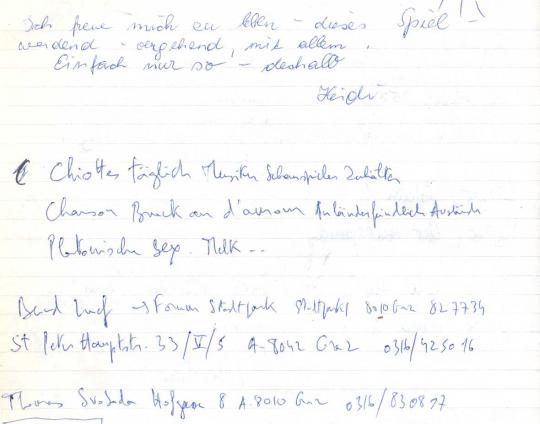 Ich freue mich zu leben – dieses Spiel!
werdend – vergehend, mit allem.
Einfach nur so – deshalb
Heidi
täglich Schauspieler Zuhälter
Chanson d'amour
Platonische Sex. Melk --
→ Forum Stadtpark Stadtpark 1 8010 Graz 827734
St Peter Hauptstr. 33/V/5 A-8042 Graz 0316/425016
Thomas Svoboda Hofgasse 8 A-8010 Graz 0316/830817